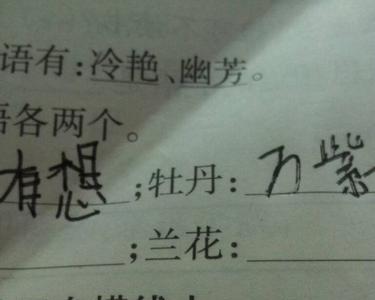 语有：冷艳、幽芳。
语各两个。
有想；牡丹：万紫
；兰花：